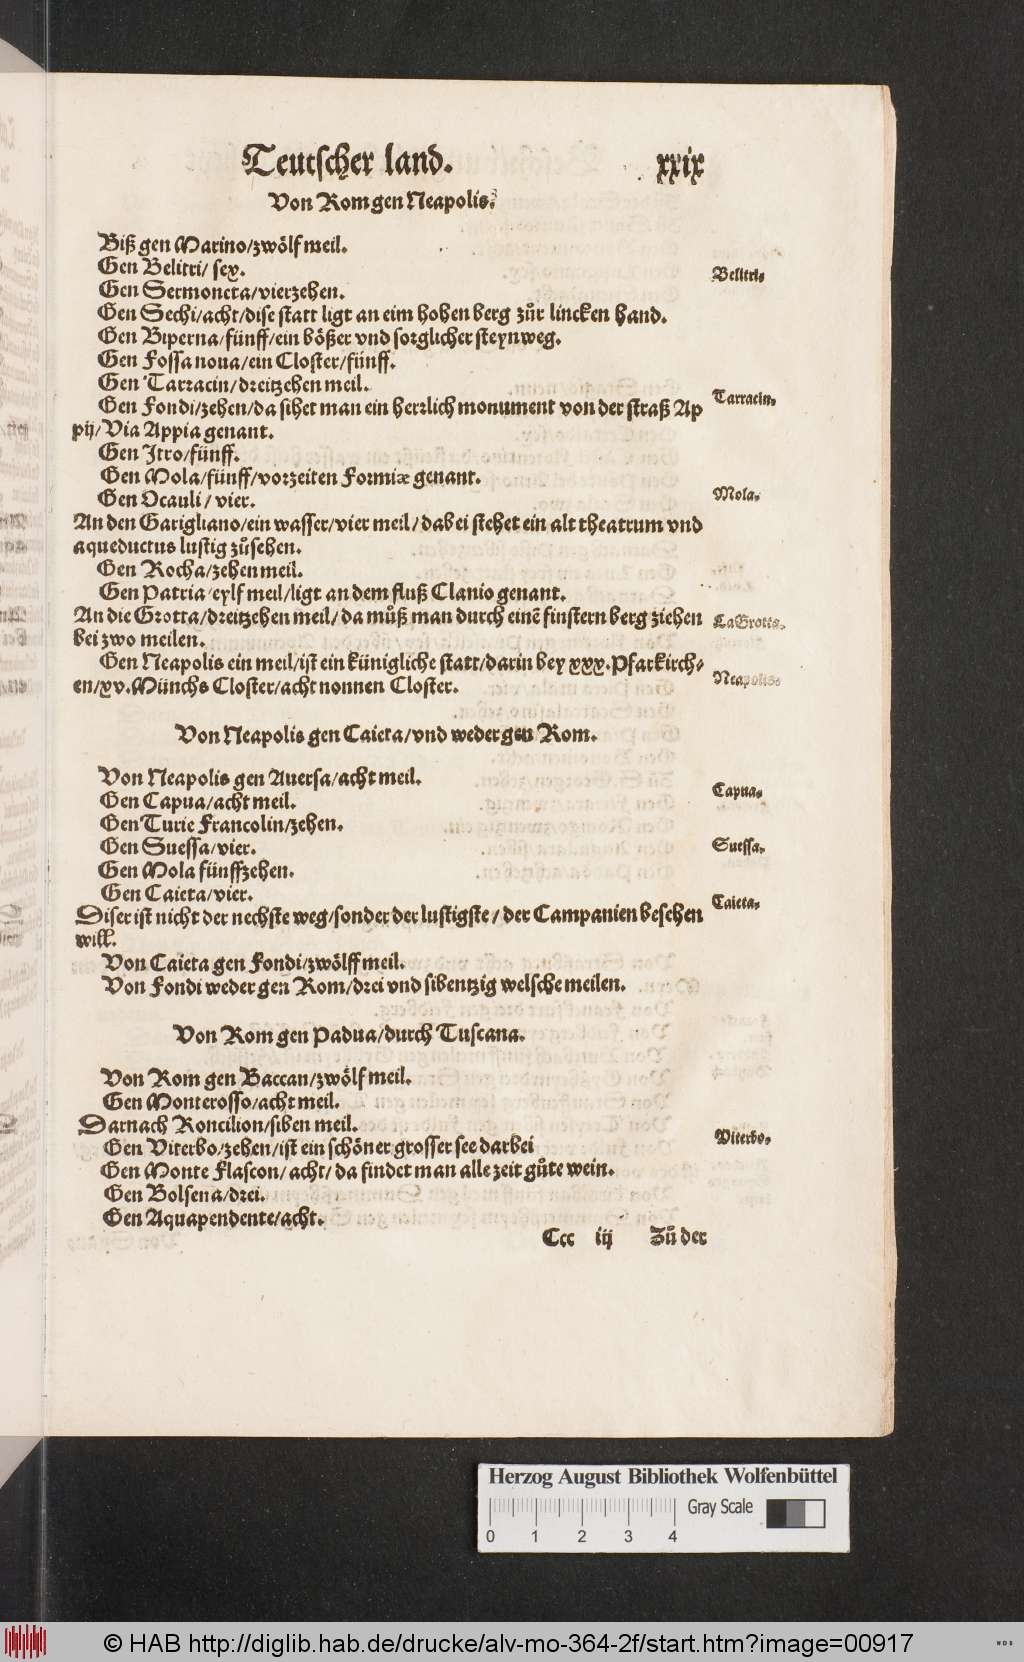 Teutscher land. xxix
Von Rom gen Neapolis.
Biß gen Marino/zwölf meil.
Gen Belitri/ sex.
Belitri.
Gen Sermoneta/vierzehen.
Gen Sechi/acht/dise statt ligt an eim hohen berg zůr lincken hand.
Gen Biperna/fünff/ein bößer vnd sorglicher steynweg.
Gen Fossa noua/ein Closter/fünff.
Gen Tarracin/dreitzehen meil.
Tarracin.
Gen Fondi/zehen/da sihet man ein herrlich monument von der straß Ap
pij/Via Appia genant.
Gen Itro/fünff.
Gen Mola/fünff/vorzeiten Formiæ genant.
Mola.
Gen Ocauli/ vier.
An den Garigliano/ein wasser/vier meil/dabei stehet ein alt theatrum vnd
aqueductus lustig zůsehen.
Gen Rocha/zehen meil.
Gen Patria eylf meil/ligt an dem fluß Clanio genant.
An die Grotta/dreitzehen meil/da můß man durch einē finstern berg ziehen
La Grotta.
bei zwo meilen.
Gen Neapolis ein meil/ist ein künigliche statt/darin bey xxx.Pfarkirch-
Neapolis.
en/xv.Münchs Closter/acht nonnen Closter.
Von Neapolis gen Caieta/vnd weder gen Rom.
Von Neapolis gen Auersa/acht meil.
Gen Capua/acht meil.
Capua.
Gen Turie Francolin/zehen.
Gen Suessa/vier.
Suessa.
Gen Mola fünffzehen.
Gen Caieta/vier.
Caieta.
Diser ist nicht der nechste weg/sonder der lustigste/ der Campanien besehen
will.
Von Caieta gen Fondi/zwölff meil.
Von Fondi weder gen Rom/drei vnd sibentzig welsche meilen.
Von Rom gen Padua/durch Tuscana.
Von Rom gen Baccan/zwölf meil.
Gen Monterosso/acht meil.
Darnach Roncilion/siben meil.
Gen Viterbo/zehen/ist ein schöner grosser see darbei
Viterbo.
Gen Monte Flascon/ acht/ da findet man alle zeit gůte wein.
Gen Bolsena/drei.
Gen Aquapendente/acht.
Ccc iij Zů der
Herzog August Bibliothek Wolfenbüttel
0 1 2 3 4 Gray Scale
© HAB http://diglib.hab.de/drucke/alv-mo-364-2f/start.htm?image=00917